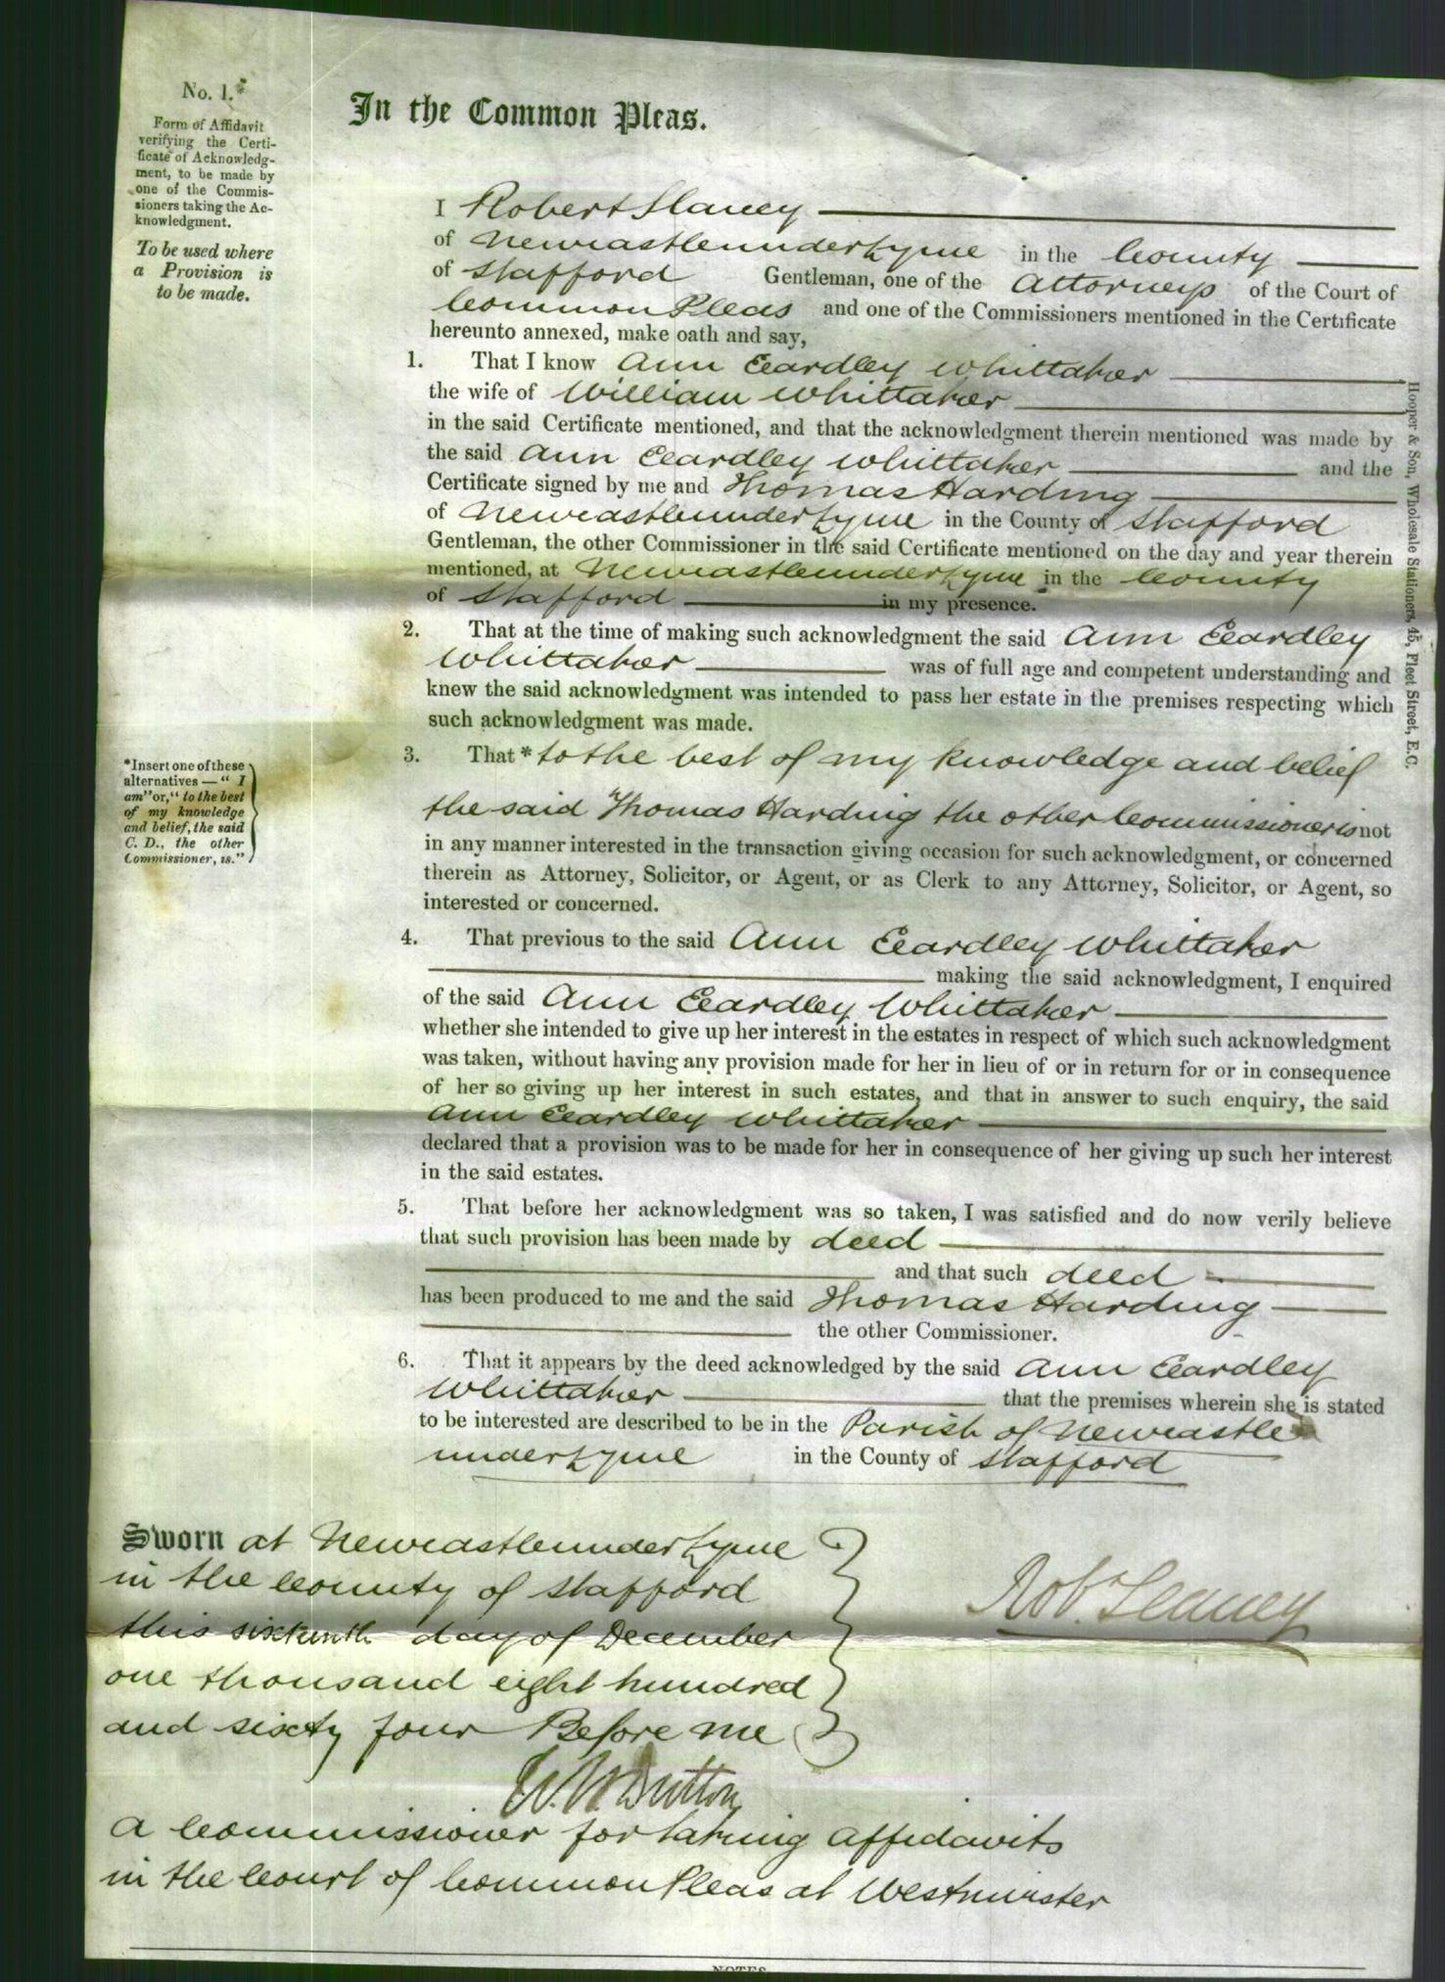 No. 1.*
Form of Affidavit
verifying the Certi-
ficate of Acknowledg-
ment, to be made by
one of the Commis-
sioners taking the Ac-
knowledgment.
To be used where
a Provision is
to be made.
In the Common Pleas.
I Robert Slaney
of Newcastleunderlyme in the County
of Stafford Gentleman, one of the Attorneys of the Court of
Common Pleas and one of the Commissioners mentioned in the Certificate
hereunto annexed, make oath and say,
1. That I know Ann Eardley Whittaker
the wife of William Whittaker
in the said Certificate mentioned, and that the acknowledgment therein mentioned was made by
the said Ann Eardley Whittaker and the
Certificate signed by me and Thomas Harding
of Newcastleunderlyme in the County of Stafford
Gentleman, the other Commissioner in the said Certificate mentioned on the day and year therein
mentioned, at Newcastleunderlyme in the County
of Stafford in my presence.
2. That at the time of making such acknowledgment the said Ann Eardley
Whittaker was of full age and competent understanding and
knew the said acknowledgment was intended to pass her estate in the premises respecting which
such acknowledgment was made.
*Insert one of these
alternatives — "I
am" or, "to the best
of my knowledge
and belief, the said
C. D., the other
Commissioner, is."
3. That * to the best of my knowledge and belief
the said Thomas Harding the other Commissioner is not
in any manner interested in the transaction giving occasion for such acknowledgment, or concerned
therein as Attorney, Solicitor, or Agent, or as Clerk to any Attorney, Solicitor, or Agent, so
interested or concerned.
4. That previous to the said Ann Eardley Whittaker
making the said acknowledgment, I enquired
of the said Ann Eardley Whittaker
whether she intended to give up her interest in the estates in respect of which such acknowledgment
was taken, without having any provision made for her in lieu of or in return for or in consequence
of her so giving up her interest in such estates, and that in answer to such enquiry, the said
Ann Eardley Whittaker
declared that a provision was to be made for her in consequence of her giving up such her interest
in the said estates.
5. That before her acknowledgment was so taken, I was satisfied and do now verily believe
that such provision has been made by deed
and that such deed
has been produced to me and the said Thomas Harding
the other Commissioner.
6. That it appears by the deed acknowledged by the said Ann Eardley
Whittaker that the premises wherein she is stated
to be interested are described to be in the Parish of Newcastle
underlyme in the County of Stafford
Sworn at Newcastleunderlyme
in the County of Stafford
this sixteenth day of December
one thousand eight hundred
and sixty four Before me
Rob. Slaney
W. W. Dutton
A Commissioner for taking affidavits
in the Court of Common Pleas at Westminster
Hooper & Son, Wholesale Stationers, 45, Fleet Street, E.C.
NOTES